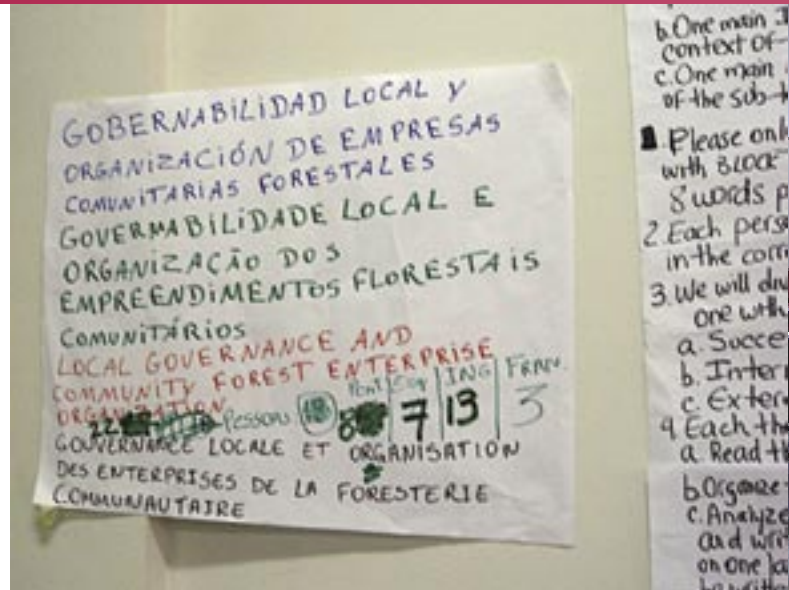 GOBERNABILIDAD LOCAL Y
ORGANIZACIÓN DE EMPRESAS
COMUNITARIAS FORESTALES
GOVERMABILIDADE LOCAL E
ORGANIZAÇÃO DOS
EMPREENDIMENTOS FLORESTAIS
COMUNITÁRIOS
LOCAL GOVERNANCE AND
COMMUNITY FOREST ENTERPRISE
ORGANIZATION
ING FRAN.
22 Pessoas 7 13 3
GOUVERNANCE LOCALE ET ORGANISATION
DES ENTERPRISES DE LA FORESTERIE
COMMUNAUTAIRE
b. One main
context of
c. One main
of the sub-
Please onl
with BLOCK
8 words p
2. Each pers
in the corr
3. We will div
one with
a. Succe
b. Inter
c. Exter
4. Each th
a. Read th
b. Organize
c. Analyze
and writ
on one la
be written